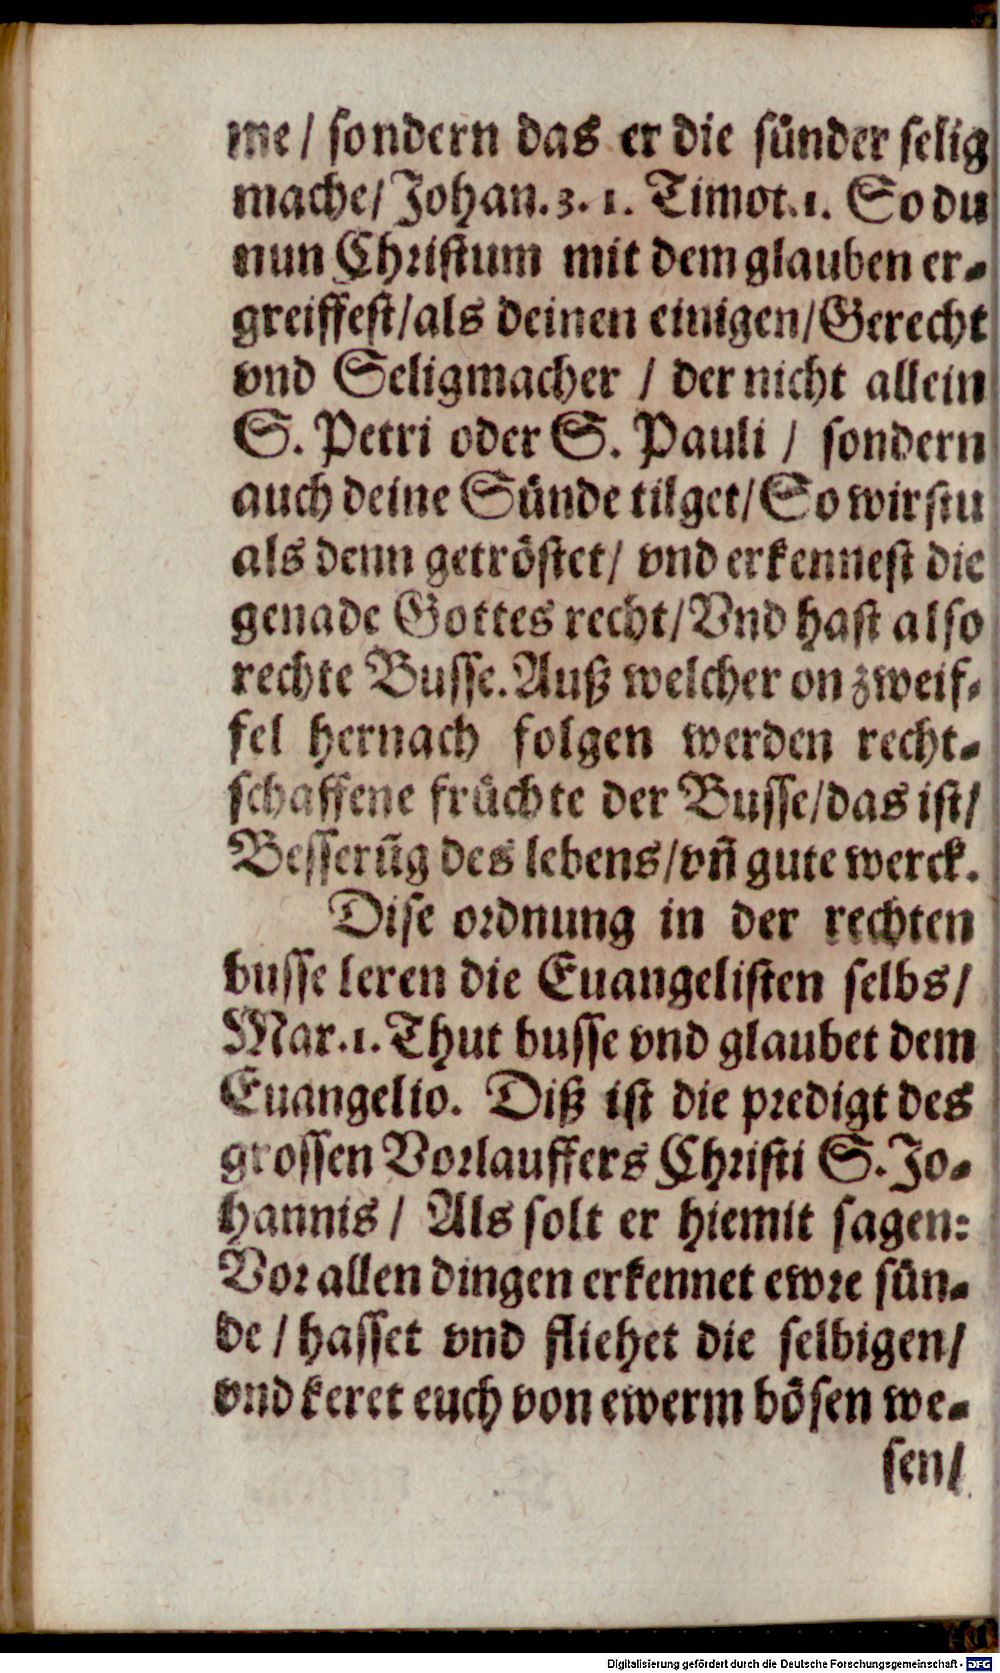 me / sondern das er die sünder selig
mache/ Johan. 3. 1. Timot. 1. So du
nun Christum mit dem glauben er-
greiffest/als deinen einigen/Gerecht
vnd Seligmacher / der nicht allein
S. Petri oder S. Pauli / sondern
auch deine Sünde tilget/So wirstu
als denn getröstet/ vnd erkennest die
genade Gottes recht/Vnd hast also
rechte Busse. Auß welcher on zweif-
fel hernach folgen werden recht-
schaffene früchte der Busse/das ist/
Besserũg des lebens/vñ gute werck.
Dise ordnung in der rechten
busse leren die Euangelisten selbs/
Mar. 1. Thut busse vnd glaubet dem
Euangelio. Diß ist die predigt des
grossen Vorlauffers Christi S. Jo-
hannis / Als solt er hiemit sagen:
Vor allen dingen erkennet ewre sün-
de / hasset vnd fliehet die selbigen/
vnd keret euch von ewerm bösen we-
sen/
Digitalisierung gefördert durch die Deutsche Forschungsgemeinschaft - DFG